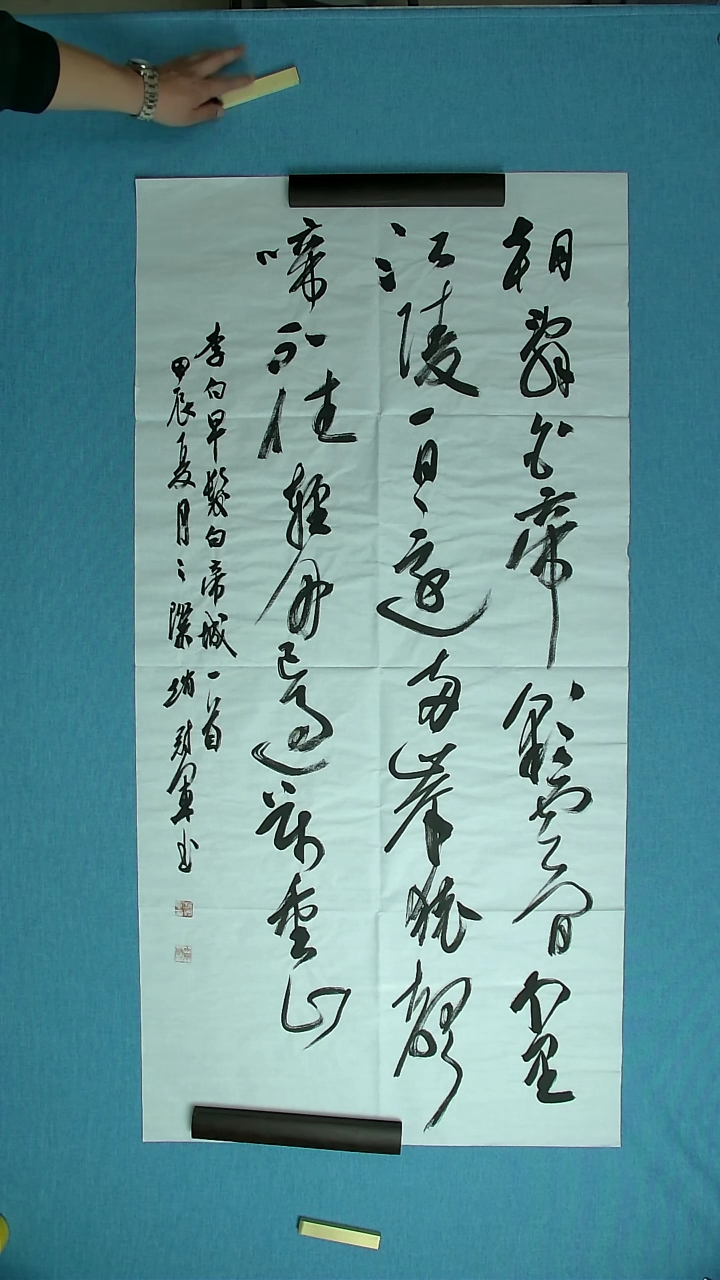 朝辭白帝彩雲間千里
江陵一日還兩岸猿聲
啼不住輕舟已過萬重山
李白早發白帝城一首
甲辰夏月之際趙軍書